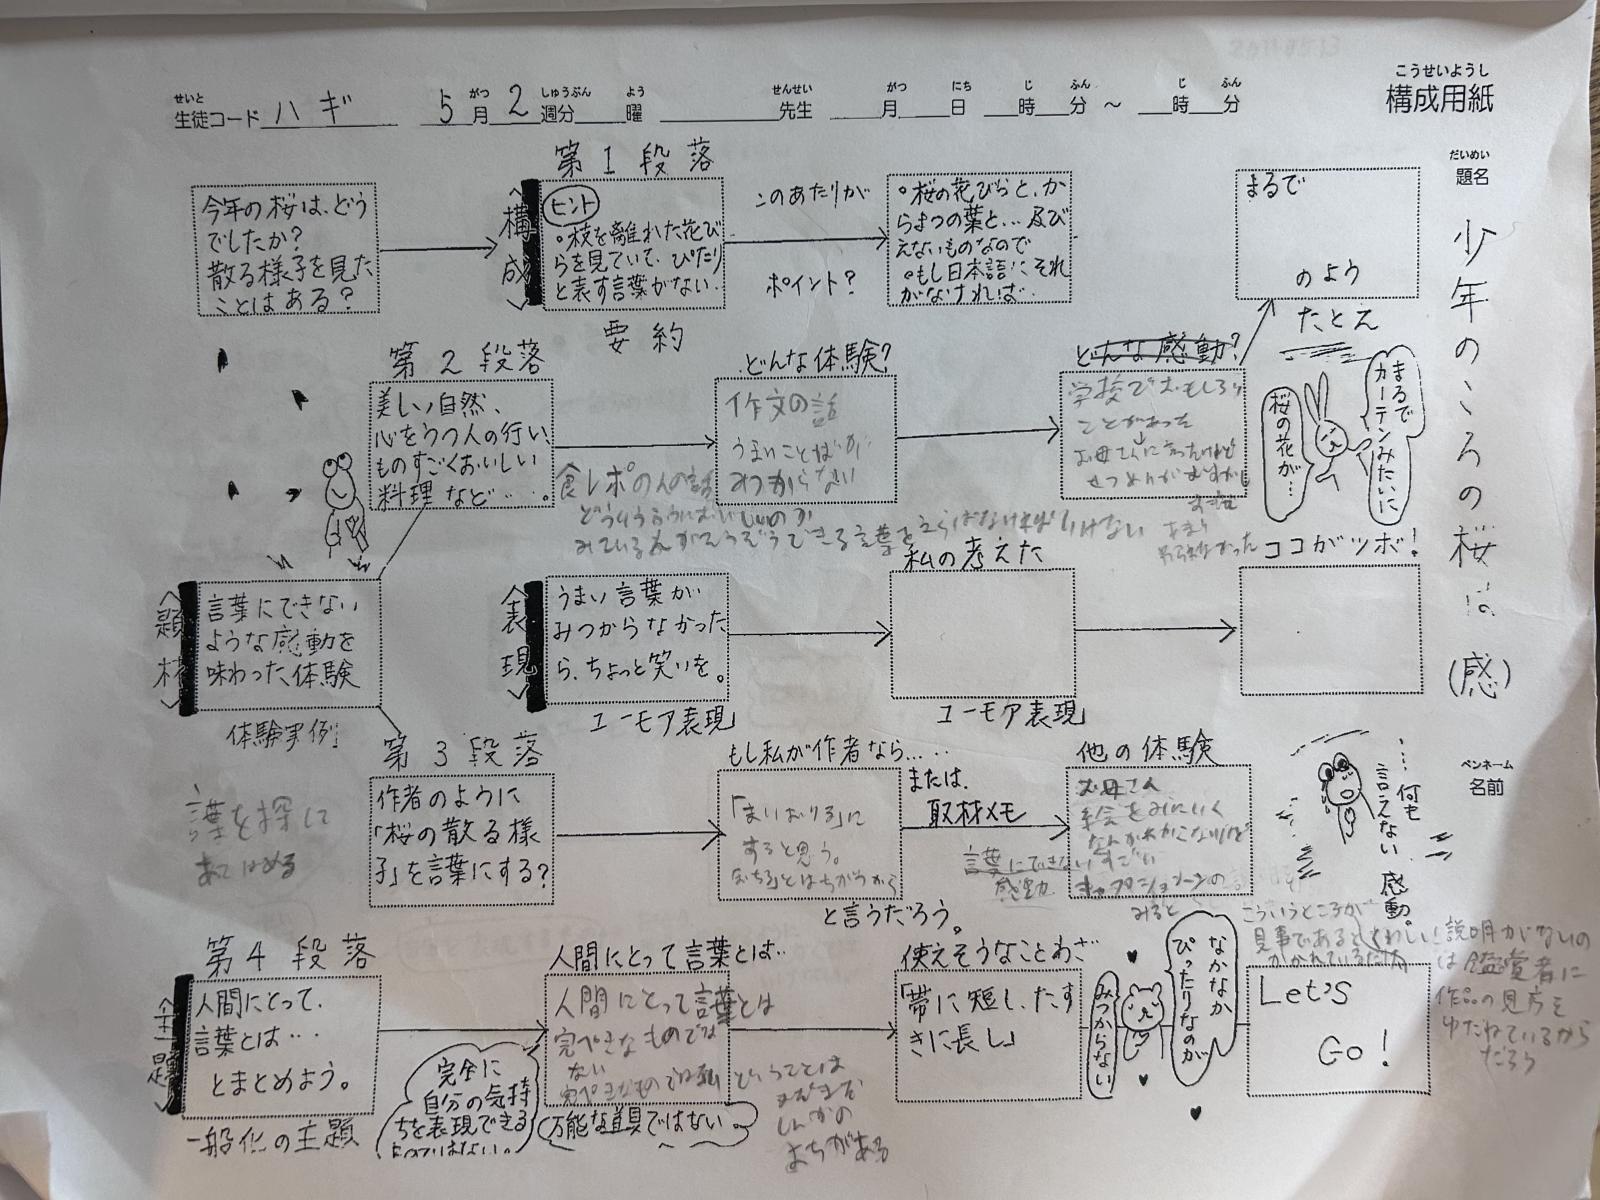 こうせいようし
構成用紙
せいと がつ しゅうぶん よう せんせい がつ にち じ ふん じ ふん
生徒コード ハギ 5月2週分 曜 先生 月 日 時 分 ～ 時 分
だいめい
題名
少年のころの桜は
(感)
ペンネーム
名前
今年の桜は、どう
でしたか?
散る様子を見た
ことはある?
<構成>
第1段落
ヒント
。枝を離れた花び
らを見ていて、ぴたり
と表す言葉がない。
要約
このあたりが
ポイント?
。桜の花びらと、か
らまつの葉と… 及び
えないものなので
。もし日本語にそれ
がなければ…
まるで
のよう
たとえ
第2段落
美しい自然、
心をうつ人の行い、
ものすごくおいしい
料理など…。
どんな体験?
作文の話
うまいことばが
みつからない
どんな感動?
学校でおもしろい
ことがあった
食レポの人の話
どういうふうにおいしいのか
みている人がそうぞうできる言葉をえらばなければいけない
まるで
カーテンみたいに
桜の花が…
ココがツボ!
<題材>
言葉にできない
ような感動を
味わった、体験
体験実例
<表現>
うまい言葉が
みつからなかった
ら、ちょっと笑いを。
ユーモア表現
私の考えた
ユーモア表現
第3段落
作者のように
「桜の散る様
子」を言葉にする?
言葉を探して
あてはめる
もし私が作者なら….
「まいおりる」に
すると思う。
「おちる」とはちがうから
と言うだろう。
または、
取材メモ
言葉にできない
感動
他の体験
お母さん
絵をみにいく
なんかわかんないけど
すごい
キャプションの
みると
こういうところが
見事であるとくわしい
かかれている
説明がないの
は鑑賞者に
作品の見方を
ゆだねているから
だろう
…何も
言えない
感動。
第4段落
<主題>
人間にとって、
言葉とは…
とまとめよう。
一般化の主題
完全に
自分の気持
ちを表現できる
ものではない。
人間にとって言葉とは…
人間にとって言葉とは
完ぺきなものでは
ない
万能な道具ではない。
ということは
まだまだ
しんかの
よちがある
使えそうなことわざ
「帯に短し、たす
きに長し」
なかなか
ぴったりなのが
みつからない
Let's
Go!